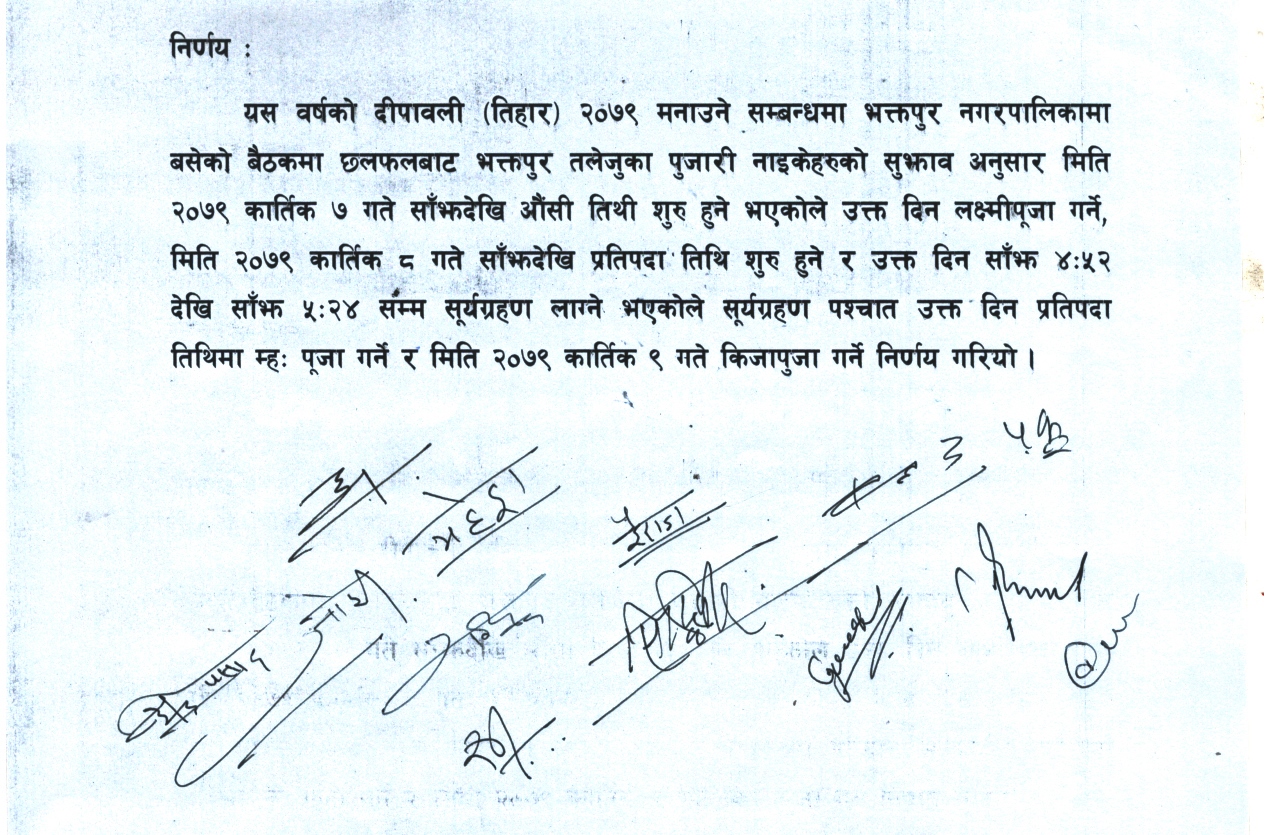 निर्णय :
यस वर्षको दीपावली (तिहार) २०७९ मनाउने सम्बन्धमा भक्तपुर नगरपालिकामा
बसेको बैठकमा छलफलबाट भक्तपुर तलेजुका पुजारी नाइकेहरुको सुझाव अनुसार मिति
२०७९ कार्तिक ७ गते साँझदेखि औंसी तिथी शुरु हुने भएकोले उक्त दिन लक्ष्मीपूजा गर्ने,
मिति २०७९ कार्तिक ८ गते साँझदेखि प्रतिपदा तिथि शुरु हुने र उक्त दिन साँझ ४:५२
देखि साँझ ५:२४ संम्म सूर्यग्रहण लाग्ने भएकोले सूर्यग्रहण पश्चात उक्त दिन प्रतिपदा
तिथिमा म्ह: पूजा गर्ने र मिति २०७९ कार्तिक ९ गते किजापुजा गर्ने निर्णय गरियो ।